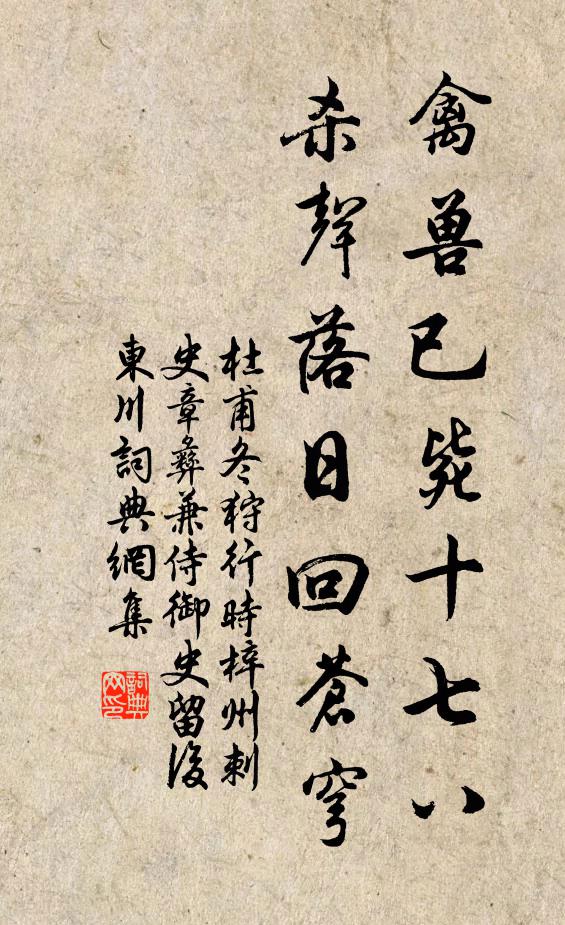 禽兽已毙十七八
杀声落日回苍穹
杜甫冬狩行時梓州刺
史章彝兼侍御史留後
東川詞典網集
詞典
网印